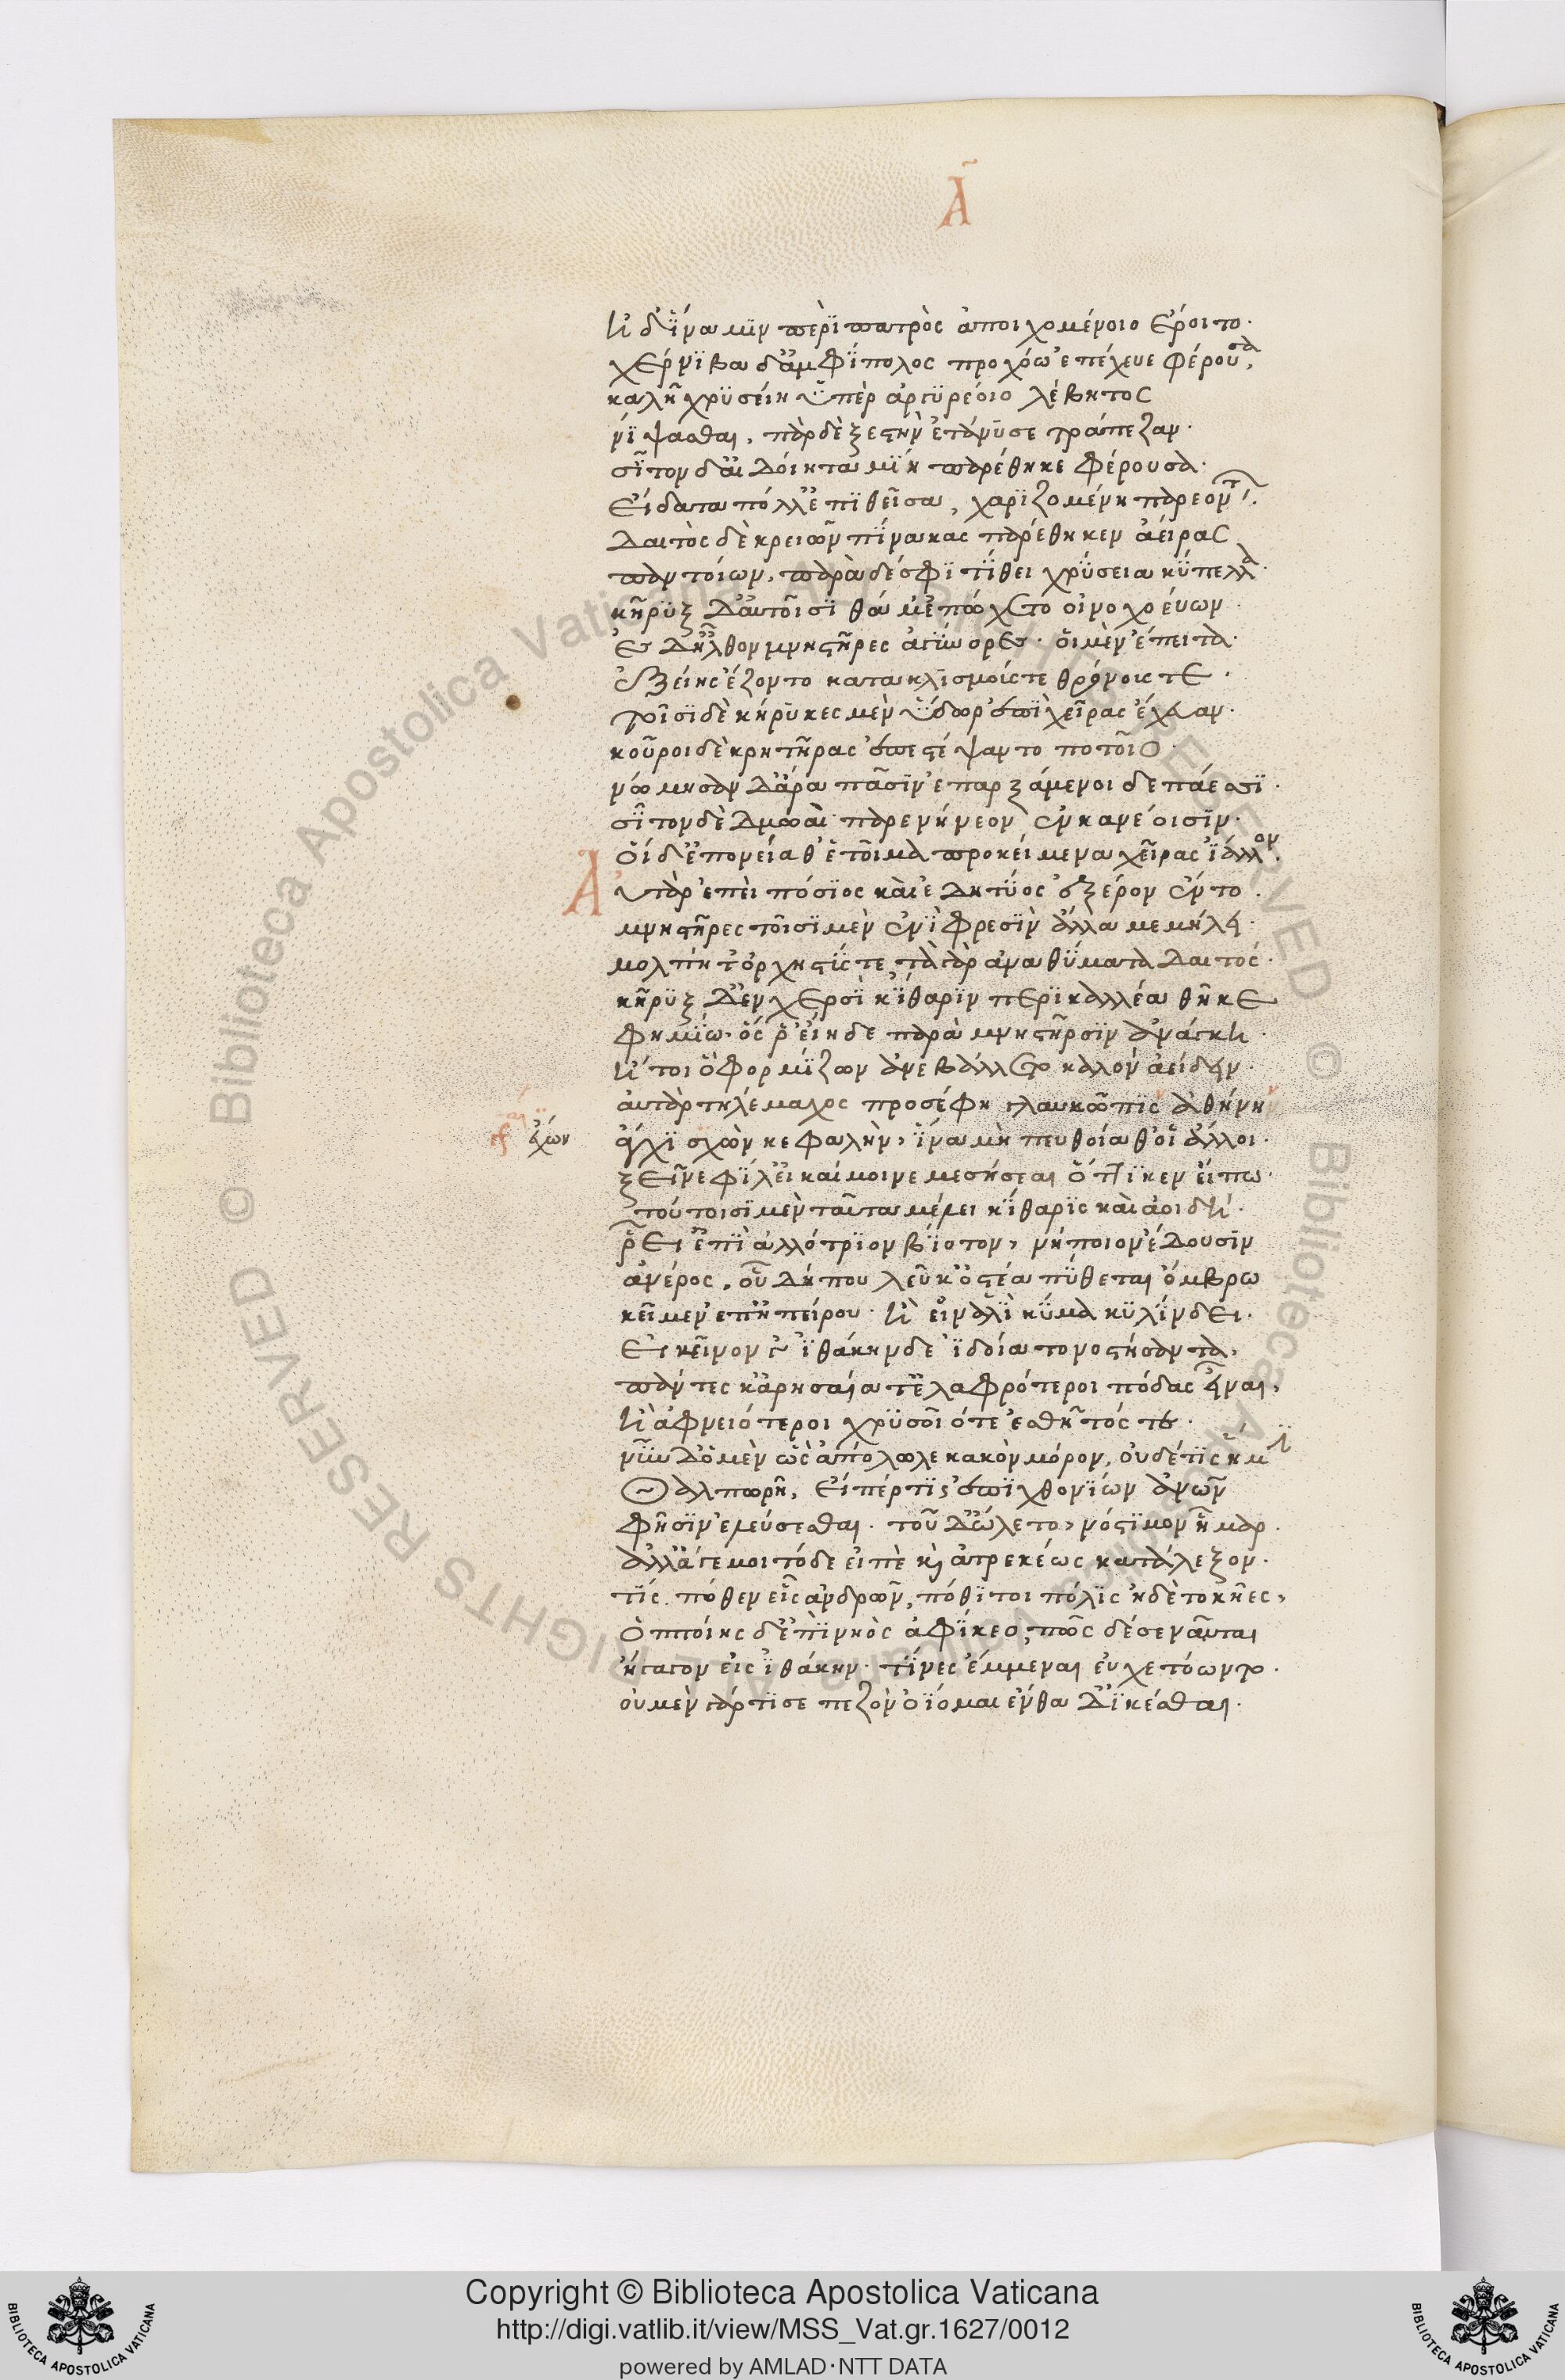 Α
ἠδ' ἵνα μιν περὶ πατρὸς ἀποιχομένοιο ἔροιτο·
χέρνιβα δ' ἀμφίπολος προχόω ἐπέχευε φέρουσα,
καλῆ χρυσείη ὑπὲρ ἀργυρέοιο λέβητος
νίψασθαι, παρ δὲ ξεστὴν ἐτάνυσε τράπεζαν·
σῖτον δ' αἰδοίη ταμίη παρέθηκε φέρουσα·
εἴδατα πόλλ' ἐπιθεῖσα, χαριζομένη παρεόντων·
δαιτρὸς δὲ κρειῶν πίνακας παρέθηκεν ἀείρας
παντοίων, παρὰ δέ σφι τίθει χρύσεια κύπελλα·
κῆρυξ δ' αὐτοῖσι θάμ' ἐπώχετο οἰνοχοεύων·
ἐς δ' ἦλθον μνηστῆρες ἀγήνορες· οἱ μὲν ἔπειτα·
ἑξείης ἕζοντο κατὰ κλισμοίς τε θρόνοις τε·
τοῖσι δὲ κήρυκες μὲν ὕδωρ ἐπὶ χεῖρας ἔχευαν·
κοῦροι δὲ κρητῆρας ἐπεστέψαντο ποτοῖο·
νώμησαν δ' ἄρα πᾶσιν ἐπαρξάμενοι δεπάεσσι·
σῖτον δὲ δμωαὶ παρενήνεον ἐν κανέοισιν·
Οἱ δ' ἐπ' ὀνείαθ' ἑτοῖμα προκείμενα χεῖρας ἴαλλον·
Αὐτὰρ ἐπεὶ πόσιος καὶ ἐδητύος ἐξ ἔρον ἕντο·
μνηστῆρες τοῖσι μὲν ἐνὶ φρεσὶν ἄλλα μεμήλει·
μολπή τ' ὀρχηστύς τε τὰ γὰρ ἀναθήματα δαιτός·
κῆρυξ δ' ἐν χερσὶ κίθαριν περικαλλέα θῆκε
φημίω· ὅς ῥ' ἤειδε παρὰ μνηστῆρσιν ἀνάγκη·
ἤτοι ὁ φορμίζων ἀνεβάλλετο καλὸν ἀείδειν·
αὐτὰρ τηλέμαχος προσέφη γλαυκῶπις ἀθήνην
ἄγχι σχὼν κεφαλὴν, ἵνα μὴ πευθοίαθ' οἱ ἄλλοι·
ξεῖνε φίλ' εἰ καί μοι νεμεσήσεαι ὅττι κεν εἴπω·
τούτοισι μὲν ταῦτα μέλει κίθαρις καὶ ἀοιδή·
ῥεῖ ἐπὶ ἀλλότριον βίοτον, νήποινον ἔδουσιν
ἀνέρος, οὗ δή που λεῦκ' ὀστέα πύθεται ὄμβρω
κεῖμεν' ἐπ' ἠπείρου· ἢ εἰν ἁλὶ κῦμα κυλίνδει·
εἰ κεῖνον γ' ἰθάκηνδε ἰδοίατο νοστήσαντα,
πάντες κ' ἀρησαίατ' ἐλαφρότεροι πόδας εἶναι,
ἢ ἀφνειότεροι χρυσοῖό τε ἐσθῆτός τε·
νῦν δ' ὁ μὲν ὣς ἀπόλωλε κακὸν μόρον, οὐδέ τις ἥμιν
Θαλπωρὴ, εἴπέρ τις ἐπιχθονίων ἀνθρώπων
φῆσιν ἐλεύσεσθαι· τοῦ δ' ὤλετο, νόστιμον ἦμαρ·
ἀλλ' ἄγε μοι τόδε εἰπὲ καὶ ἀτρεκέως κατάλεξον·
τίς πόθεν εἶς ἀνδρῶν, πόθι τοι πόλις ἠδὲ τοκῆες,
Ὁπποίης δ' ἐπὶ νηὸς ἀφίκεο, πῶς δέ σε ναῦται
ἤγαγον εἰς ἰθάκην· τίνες ἔμμεναι εὐχετόωντο·
οὐ μὲν γάρ τι σε πεζὸν ὀΐομαι ἐνθάδ' ἱκέσθαι·
Copyright © Biblioteca Apostolica Vaticana
http://digi.vatlib.it/view/MSS_Vat.gr.1627/0012
powered by AMLAD·NTT DATA